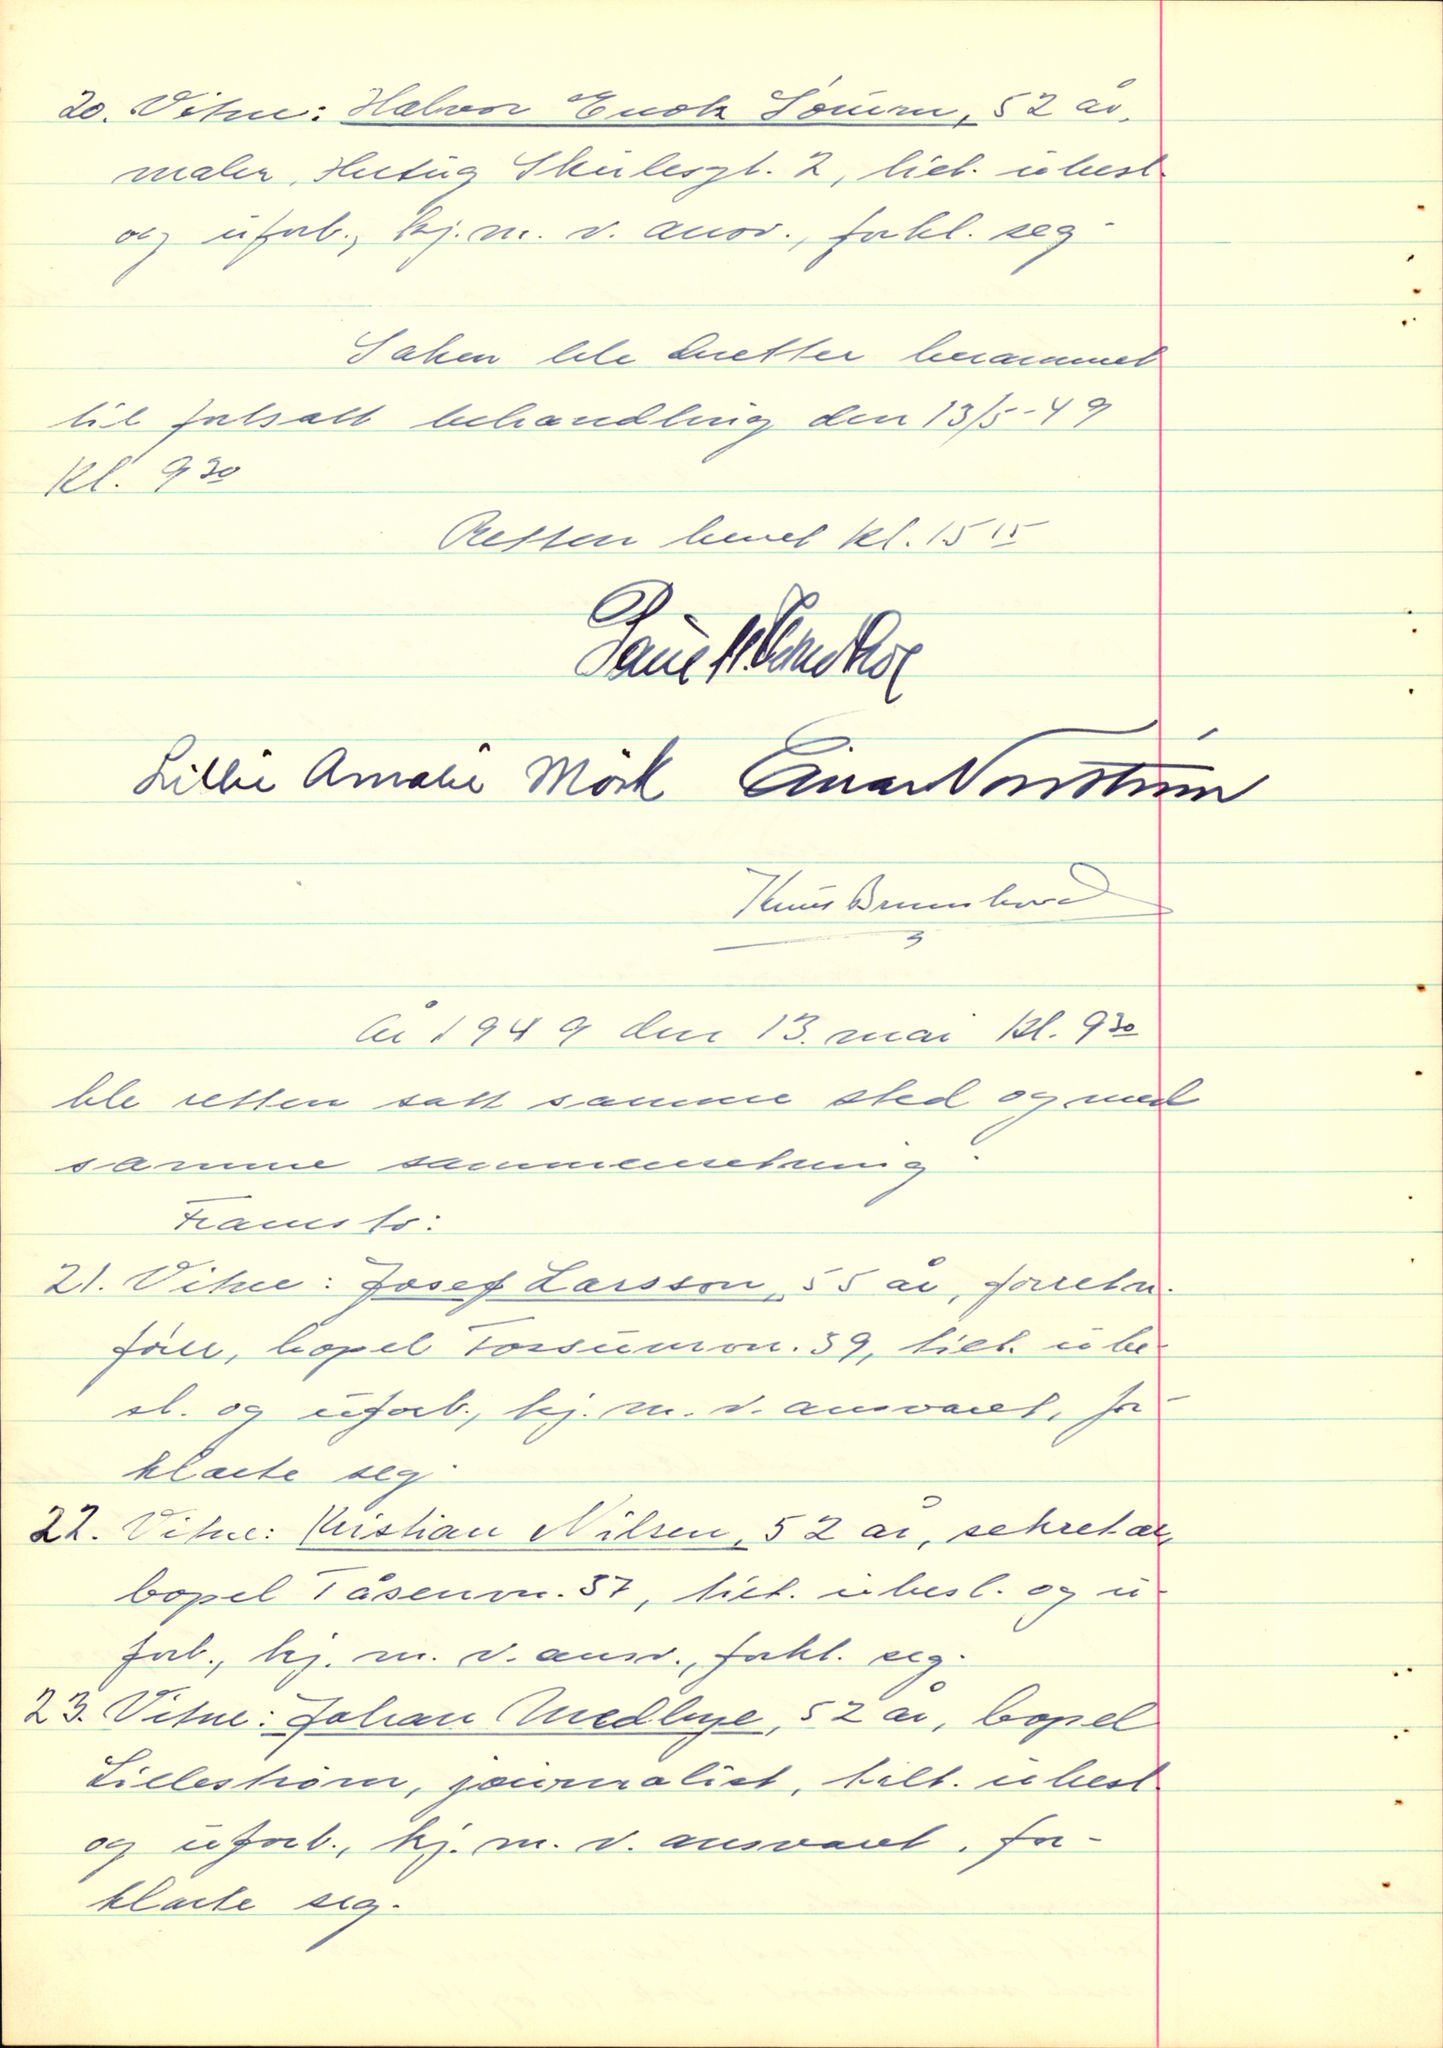 20. Vitne: Halvor Enok Sønnen, 52 år,
maler, Hertug Skulesgt. 2, tilt. ubesl.
og uforb., kj. m. v. ansv., forkl. seg.
Saken ble deretter berammet
til fortsatt behandling den 13/5-49
Kl. 9 30
Retten hevet kl. 15 15
Lillie Amalie Mörk Einar Norstrøm
Knut Brunshovd
År 1949 den 13. mai kl. 9 30
ble retten satt samme sted og med
samme sammensetning.
Framsto:
21. Vitne: Josef Larsson, 55 år, forretn.
fører, bopel Fossumvn. 39, tilt. ube-
sl. og uforb., kj. m. v. ansvaret, for-
klarte seg.
22. Vitne: Kristian Nilsen, 52 år, sekretær,
bopel Tåsenvn. 37, tilt. ubesl. og u-
forb., kj. m. v. ansv., forkl. seg.
23. Vitne: Johan Medbye, 52 år, bopel
Lillestrøm, journalist, tilt. ubesl.
og uforb., kj. m. v. ansvaret, for-
klarte seg.